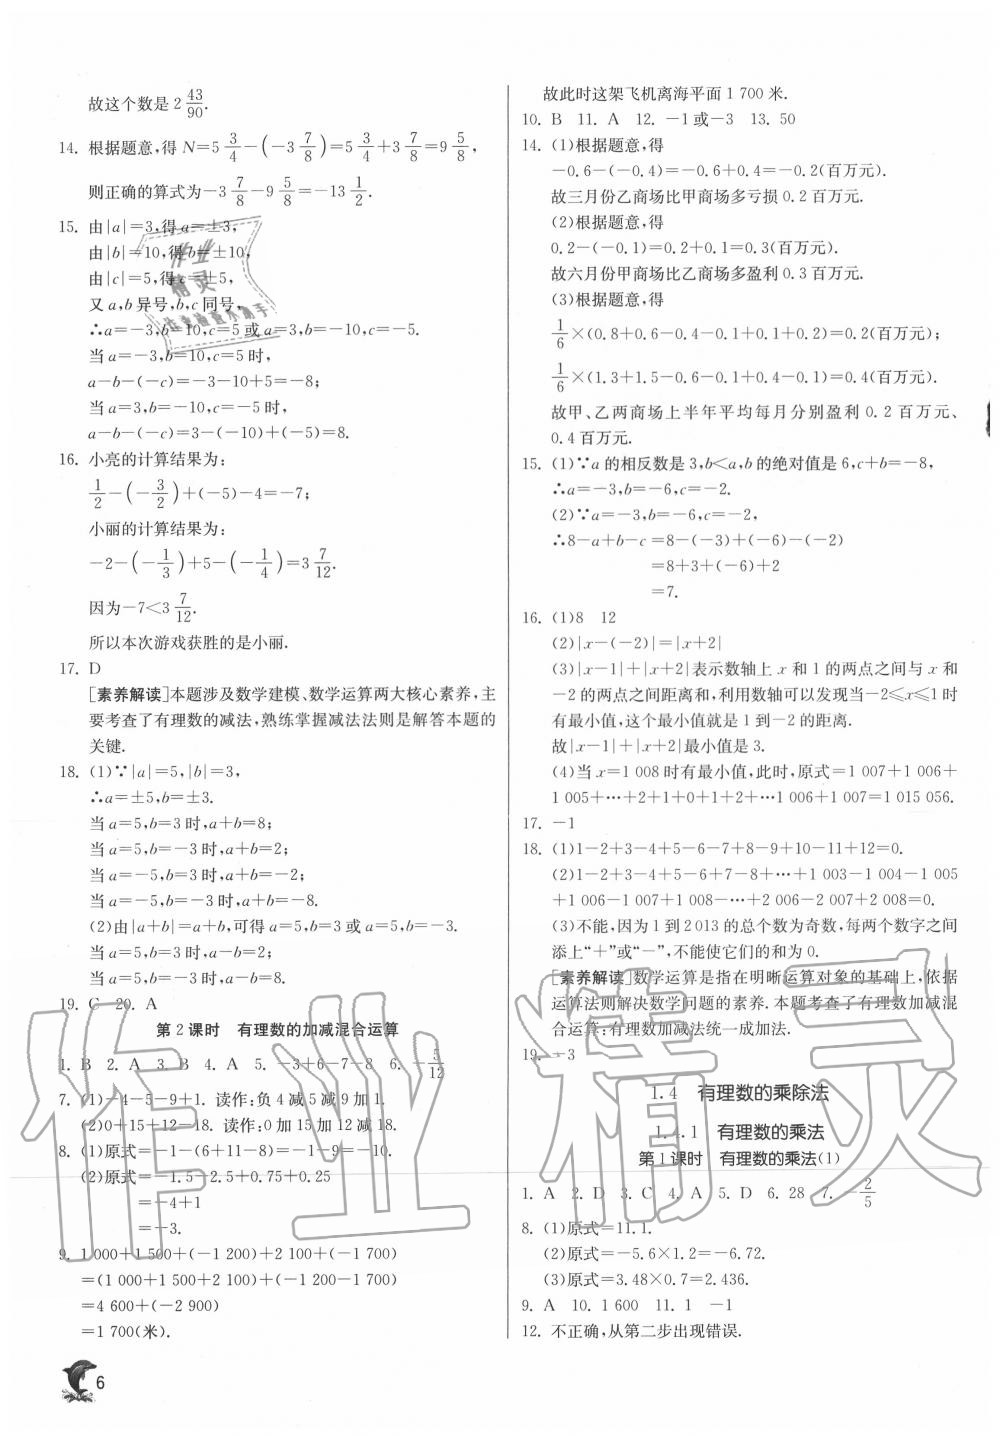 故这个数是2 43/90.
14. 根据题意,得 N=5 3/4-(-3 7/8)=5 3/4+3 7/8=9 5/8,
则正确的算式为-3 7/8-9 5/8=-13 1/2.
15. 由|a|=3,得a=±3,
由|b|=10,得b=±10,
由|c|=5,得c=±5,
又a,b异号,b,c同号,
∴a=-3,b=10,c=5或a=3,b=-10,c=-5.
当a=-3,b=10,c=5时,
a-b-(-c)=-3-10+5=-8;
当a=3,b=-10,c=-5时,
a-b-(-c)=3-(-10)+(-5)=8.
16. 小亮的计算结果为:
1/2-(-3/2)+(-5)-4=-7;
小丽的计算结果为:
-2-(-1/3)+5-(-1/4)=3 7/12.
因为-7<3 7/12.
所以本次游戏获胜的是小丽.
17. D
[素养解读]本题涉及数学建模、数学运算两大核心素养,主
要考查了有理数的减法,熟练掌握减法法则是解答本题的
关键.
18. (1)∵|a|=5,|b|=3,
∴a=±5,b=±3.
当a=5,b=3时,a+b=8;
当a=5,b=-3时,a+b=2;
当a=-5,b=3时,a+b=-2;
当a=-5,b=-3时,a+b=-8.
(2)由|a+b|=a+b,可得a=5,b=3或a=5,b=-3.
当a=5,b=3时,a-b=2;
当a=5,b=-3时,a-b=8.
19. C 20. A
第2课时 有理数的加减混合运算
1. B 2. A 3. B 4. A 5. -3+6-7-8 6. -5/12
7. (1)-4-5-9+1. 读作:负4减5减9加1.
(2)0+15+12-18. 读作:0加15加12减18.
8. (1)原式=-1-(6+11-8)=-1-9=-10.
(2)原式=-1.5-2.5+0.75+0.25
=-4+1
=-3.
9. 1 000+1 500+(-1 200)+2 100+(-1 700)
=(1 000+1 500+2 100)+(-1 200-1 700)
=4 600+(-2 900)
=1 700(米).
故此时这架飞机离海平面1 700米.
10. B 11. A 12. -1或-3 13. 50
14. (1)根据题意,得
-0.6-(-0.4)=-0.6+0.4=-0.2(百万元).
故三月份乙商场比甲商场多亏损0.2百万元.
(2)根据题意,得
0.2-(-0.1)=0.2+0.1=0.3(百万元).
故六月份甲商场比乙商场多盈利0.3百万元.
(3)根据题意,得
1/6×(0.8+0.6-0.4-0.1+0.1+0.2)=0.2(百万元);
1/6×(1.3+1.5-0.6-0.1+0.4-0.1)=0.4(百万元).
故甲、乙两商场上半年平均每月分别盈利0.2百万元、
0.4百万元.
15. (1)∵a的相反数是3,b<a,b的绝对值是6,c+b=-8,
∴a=-3,b=-6,c=-2.
(2)∵a=-3,b=-6,c=-2,
∴8-a+b-c=8-(-3)+(-6)-(-2)
=8+3+(-6)+2
=7.
16. (1)8 12
(2)|x-(-2)|=|x+2|
(3)|x-1|+|x+2|表示数轴上x和1的两点之间与x和
-2的两点之间距离和,利用数轴可以发现当-2≤x≤1时
有最小值,这个最小值就是1到-2的距离.
故|x-1|+|x+2|最小值是3.
(4)当x=1 008时有最小值,此时,原式=1 007+1 006+
1 005+…+2+1+0+1+2+…1 006+1 007=1 015 056.
17. -1
18. (1)1-2+3-4+5-6-7+8-9+10-11+12=0.
(2)1-2+3-4+5-6+7-8+…+1 003-1 004-1 005
+1 006-1 007+1 008-…+2 006-2 007+2 008=0.
(3)不能,因为1到2 013的总个数为奇数,每两个数字之间
添上“+”或“-”,不能使它们的和为0.
[素养解读]数学运算是指在明晰运算对象的基础上,依据
运算法则解决数学问题的素养.本题考查了有理数加减混
合运算:有理数加减法统一成加法.
19. -3
1.4 有理数的乘除法
1.4.1 有理数的乘法
第1课时 有理数的乘法(1)
1. A 2. D 3. C 4. A 5. D 6. 28 7. -2/5
8. (1)原式=11.1.
(2)原式=-5.6×1.2=-6.72.
(3)原式=3.48×0.7=2.436.
9. A 10. 1 600 11. 1 -1
12. 不正确,从第二步出现错误.
6
作业精灵